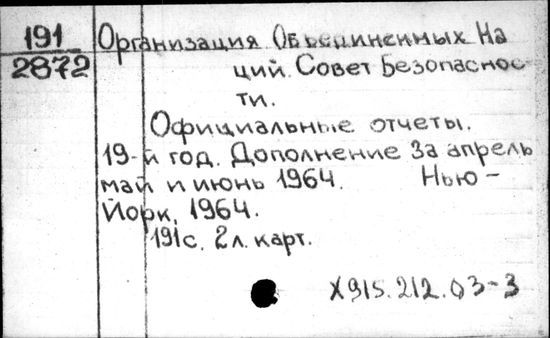 191
2872
Организация Объединенных На
ций. Совет Безопаснос-
ти.
Официальные отчеты.
19-й год. Дополнение за апрель
май и июнь 1964. Нью-
Йорк, 1964.
191с. 2л. карт.
X915.212.03-3